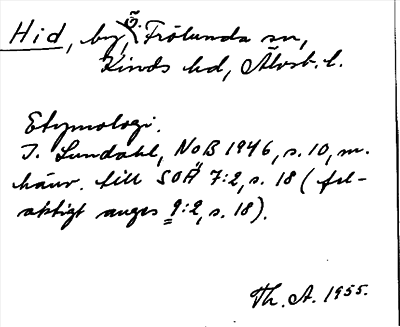 Hid, by, Ö. Frölunda sn,
Kinds hd, Älvsb. l.
Etymologi.
I. Lundahl, NoB 1946, s. 10, m.
hänv. till SOÄ 7:2, s. 18 (fel-
aktigt anges 9:2, s. 18).
Th. A. 1955.